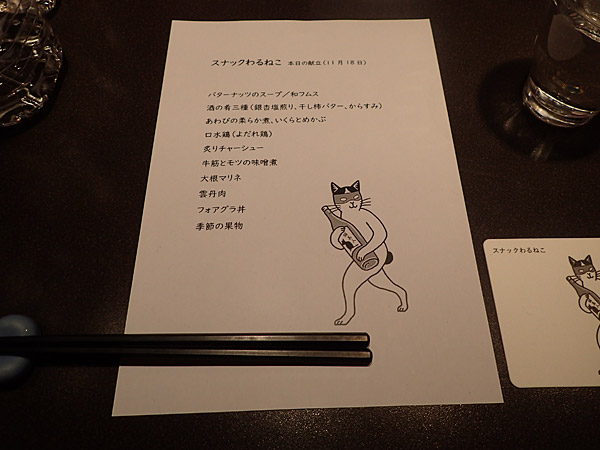 スナックわるねこ 本日の献立(11月18日)
バターナッツのスープ／和フムス
酒の肴三種(銀杏塩煎り、干し柿バター、からすみ)
あわびの柔らか煮、いくらとめかぶ
口水鶏(よだれ鶏)
炙りチャーシュー
牛筋とモツの味噌煮
大根マリネ
雲丹肉
フォアグラ丼
季節の果物
スナックわるねこ